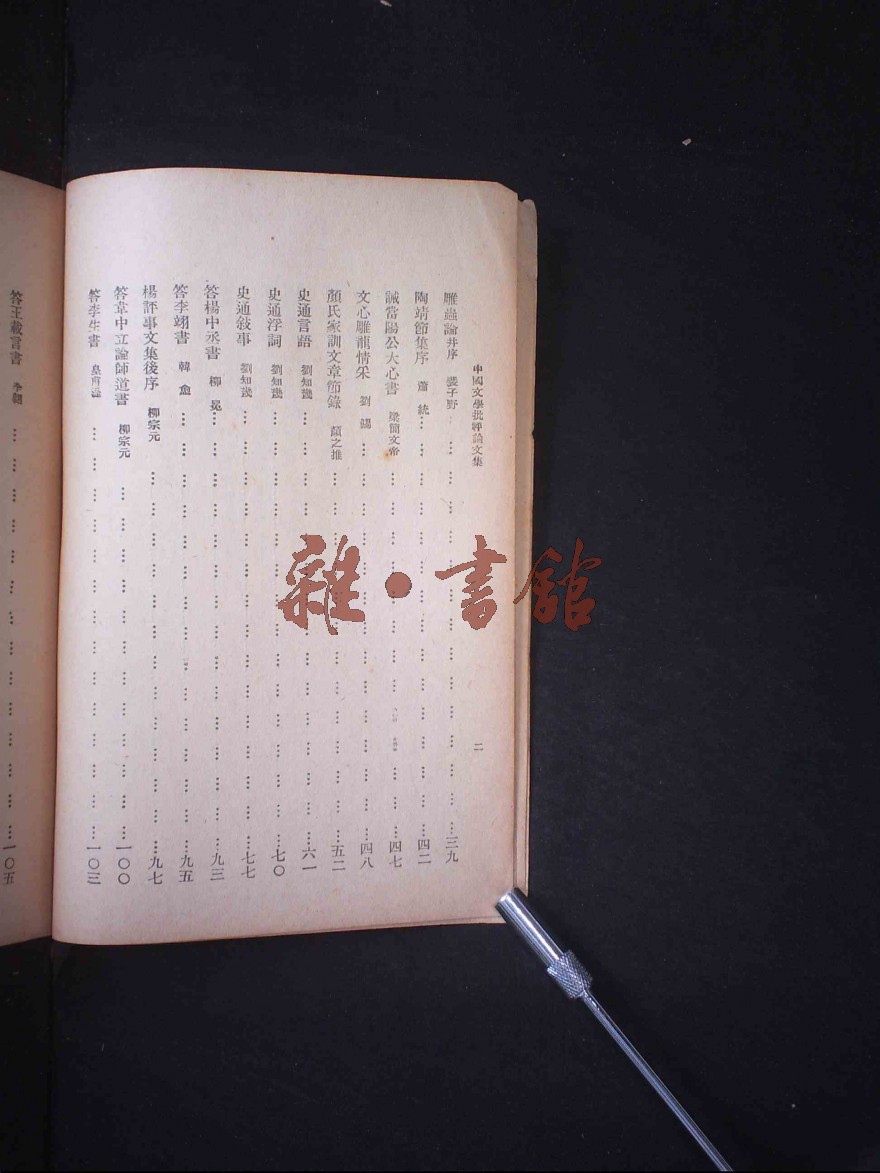 中國文學批評論文集
二
雕蟲論幷序 裴子野 … … … … … … … … … … … … … … 三九
陶靖節集序 蕭統 … … … … … … … … … … … … … … 四二
誡當陽公大心書 梁簡文帝 … … … … … … … … … … … … … 四七
文心雕龍情采 劉勰 … … … … … … … … … … … … … … 四八
顏氏家訓文章節錄 顏之推 … … … … … … … … … … … … … 五二
史通言語 劉知幾 … … … … … … … … … … … … … … 六一
史通浮詞 劉知幾 … … … … … … … … … … … … … … 七〇
史通敍事 劉知幾 … … … … … … … … … … … … … … 七七
答楊中丞書 柳冕 … … … … … … … … … … … … … … 九三
答李翊書 韓愈 … … … … … … … … … … … … … … 九五
楊評事文集後序 柳宗元 … … … … … … … … … … … … … 九七
答韋中立論師道書 柳宗元 … … … … … … … … … … … … 一〇〇
答李生書 皇甫湜 … … … … … … … … … … … … … … 一〇三
答王載言書 李翺 … … … … … … … … … … … … … … 一〇五
雜·書館